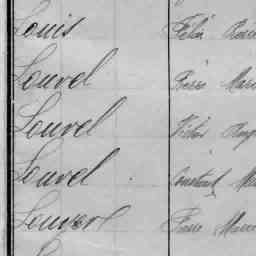 Louis Félix
Louvel Pierre Marie
Louvel Victor
Louvel Constant
Louvel Pierre Marie